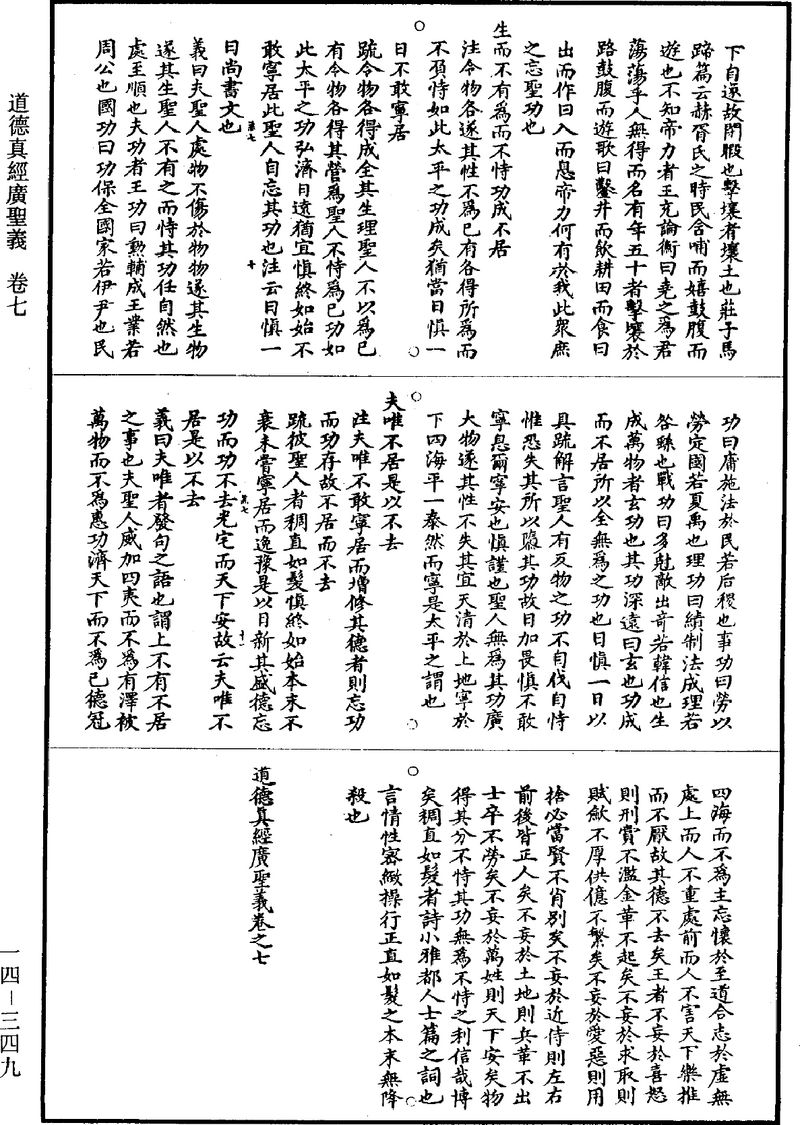 道德真經廣聖義　卷七
下自逸故閑暇也擊壤者壤土也莊子馬
蹄篇云赫胥氏之時民含哺而嬉鼓腹而
遊也不知帝力者王充論衡曰堯之為君
蕩蕩乎人無得而名有年五十者擊壤於
路鼓腹而遊歌曰鑿井而飲耕田而食日
出而作日入而息帝力何有於我此眾庶
之忘聖功也
生而不有為而不恃功成不居
注令物各遂其性不為已有各得所為而
不負恃如此太平之功成矣猶當日慎一
日不敢寧居
疏令物各得成全其生理聖人不以為已
有令物各得其營為聖人不恃為已功如
此太平之功弘濟日遠猶宜慎終如始不
敢寧居此聖人自忘其功也注云日慎一
第七　十
日尚書文也
義曰夫聖人處物不傷於物物遂其生物
遂其生聖人不有之而恃其功任自然也
處至順也夫功者王功曰勳輔成王業若
周公也國功曰功保全國家若伊尹也民
功曰庸施法於民若后稷也事功曰勞以
勞定國若夏禹也理功曰績制法成理若
咎繇也戰功曰多剋敵出奇若韓信也生
成萬物者玄功也其功深遠曰玄也功成
而不居所以全無為之功也日慎一日以
具疏解言聖人有及物之功不自伐自恃
惟恐失其所以隳其功故日加畏慎不敢
寧息爾寧安也慎謹也聖人無為其功廣
大物遂其性不失其宜天清於上地寧於
下四海平一泰然而寧是太平之謂也
夫唯不居是以不去
注夫唯不敢寧居而增修其德者則忘功
而功存故不居而不去
疏彼聖人者稠直如髮慎終如始本末不
衰未嘗寧居而逸豫是以日新其盛德忘
第七　十一
功而功不去光宅而天下安故云夫唯不
居是以不去
義曰夫唯者發句之語也謂上不有不居
之事也夫聖人威加四夷而不為有澤被
萬物而不為惠功濟天下而不為已德冠
四海而不為主忘懷於至道合志於虛無
處上而人不重處前而人不害天下樂推
而不厭故其德不去矣王者不妄於喜怒
則刑賞不濫金革不起矣不妄於求取則
賦斂不厚供億不繁矣不妄於愛惡則用
捨必當賢不肖別矣不妄於近侍則左右
前後皆正人矣不妄於土地則兵革不出
士卒不勞矣不妄於萬姓則天下安矣物
得其分不恃其功無為不恃之利信哉博
矣稠直如髮者詩小雅都人士篇之詞也
言情性密緻操行正直如髮之本末無降
殺也
道德真經廣聖義卷之七
一四－三四九